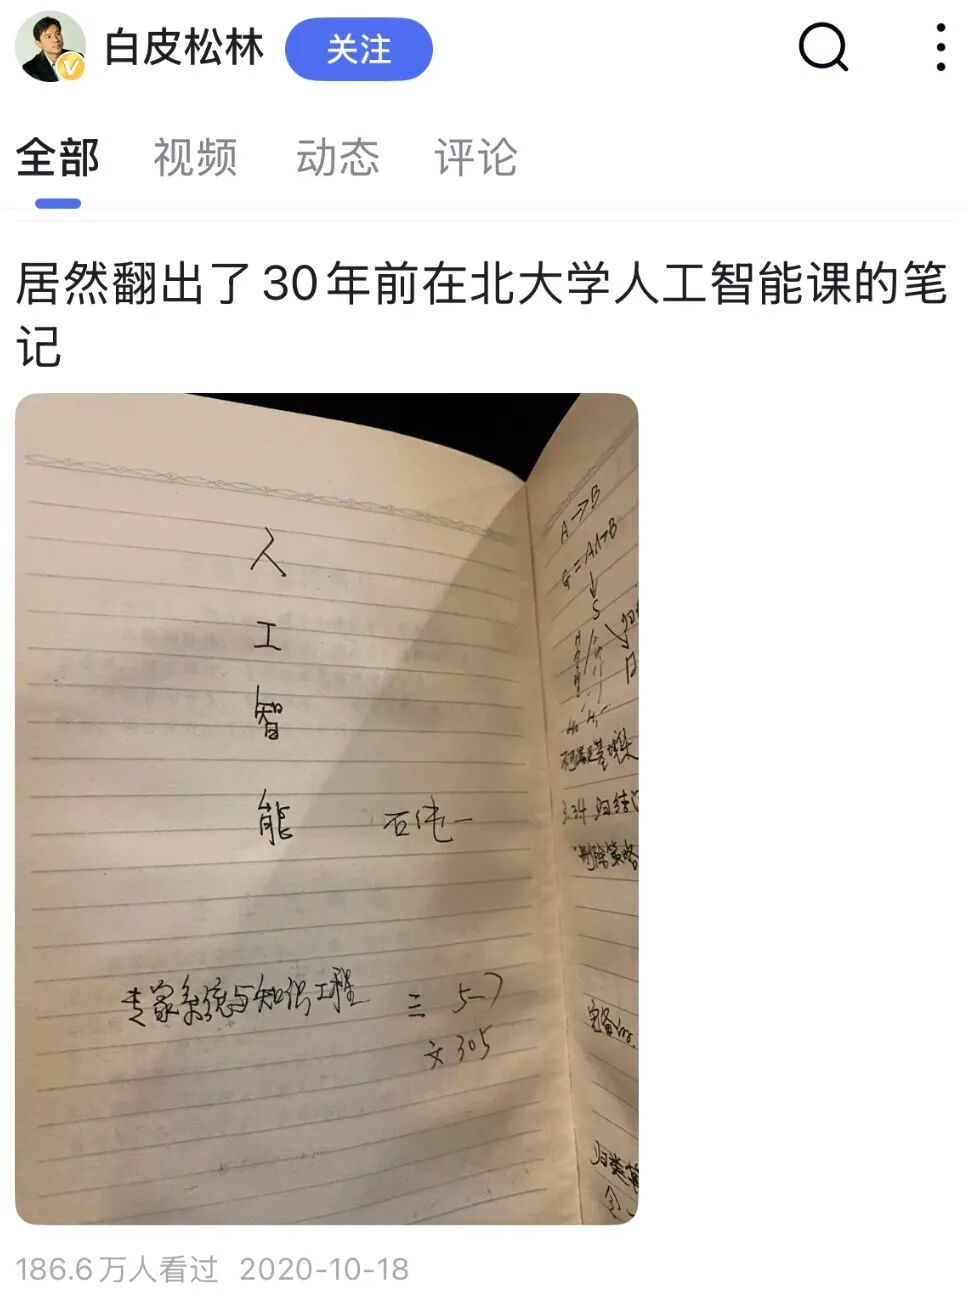 白皮松林 关注
全部 视频 动态 评论
居然翻出了30年前在北大学人工智能课的笔
记
人
工
智
能 石纯一
专家系统与知识工程 三 5-7
文305
A→B
G=A∧~B
↓
S
H₀ H₁
不可满足基例集
3.34 归结
删除策略
完备
归类
186.6万人看过 2020-10-18